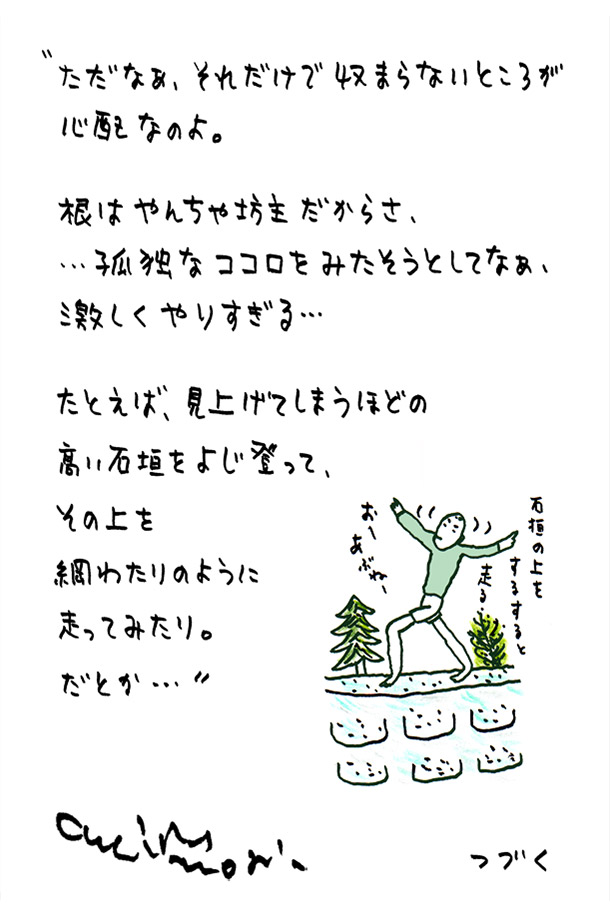 〝ただなぁ、それだけで収まらないところが
心配なのよ。
根はやんちゃ坊主だからさ、
…孤独なココロをみたそうとしてなぁ、
激しくやりすぎる…
たとえば、見上げてしまうほどの
高い石垣をよじ登って、
その上を
綱わたりのように
走ってみたり。
だとか…〃
石垣の上を
するすると
走る…
おー
あぶねー
つづく